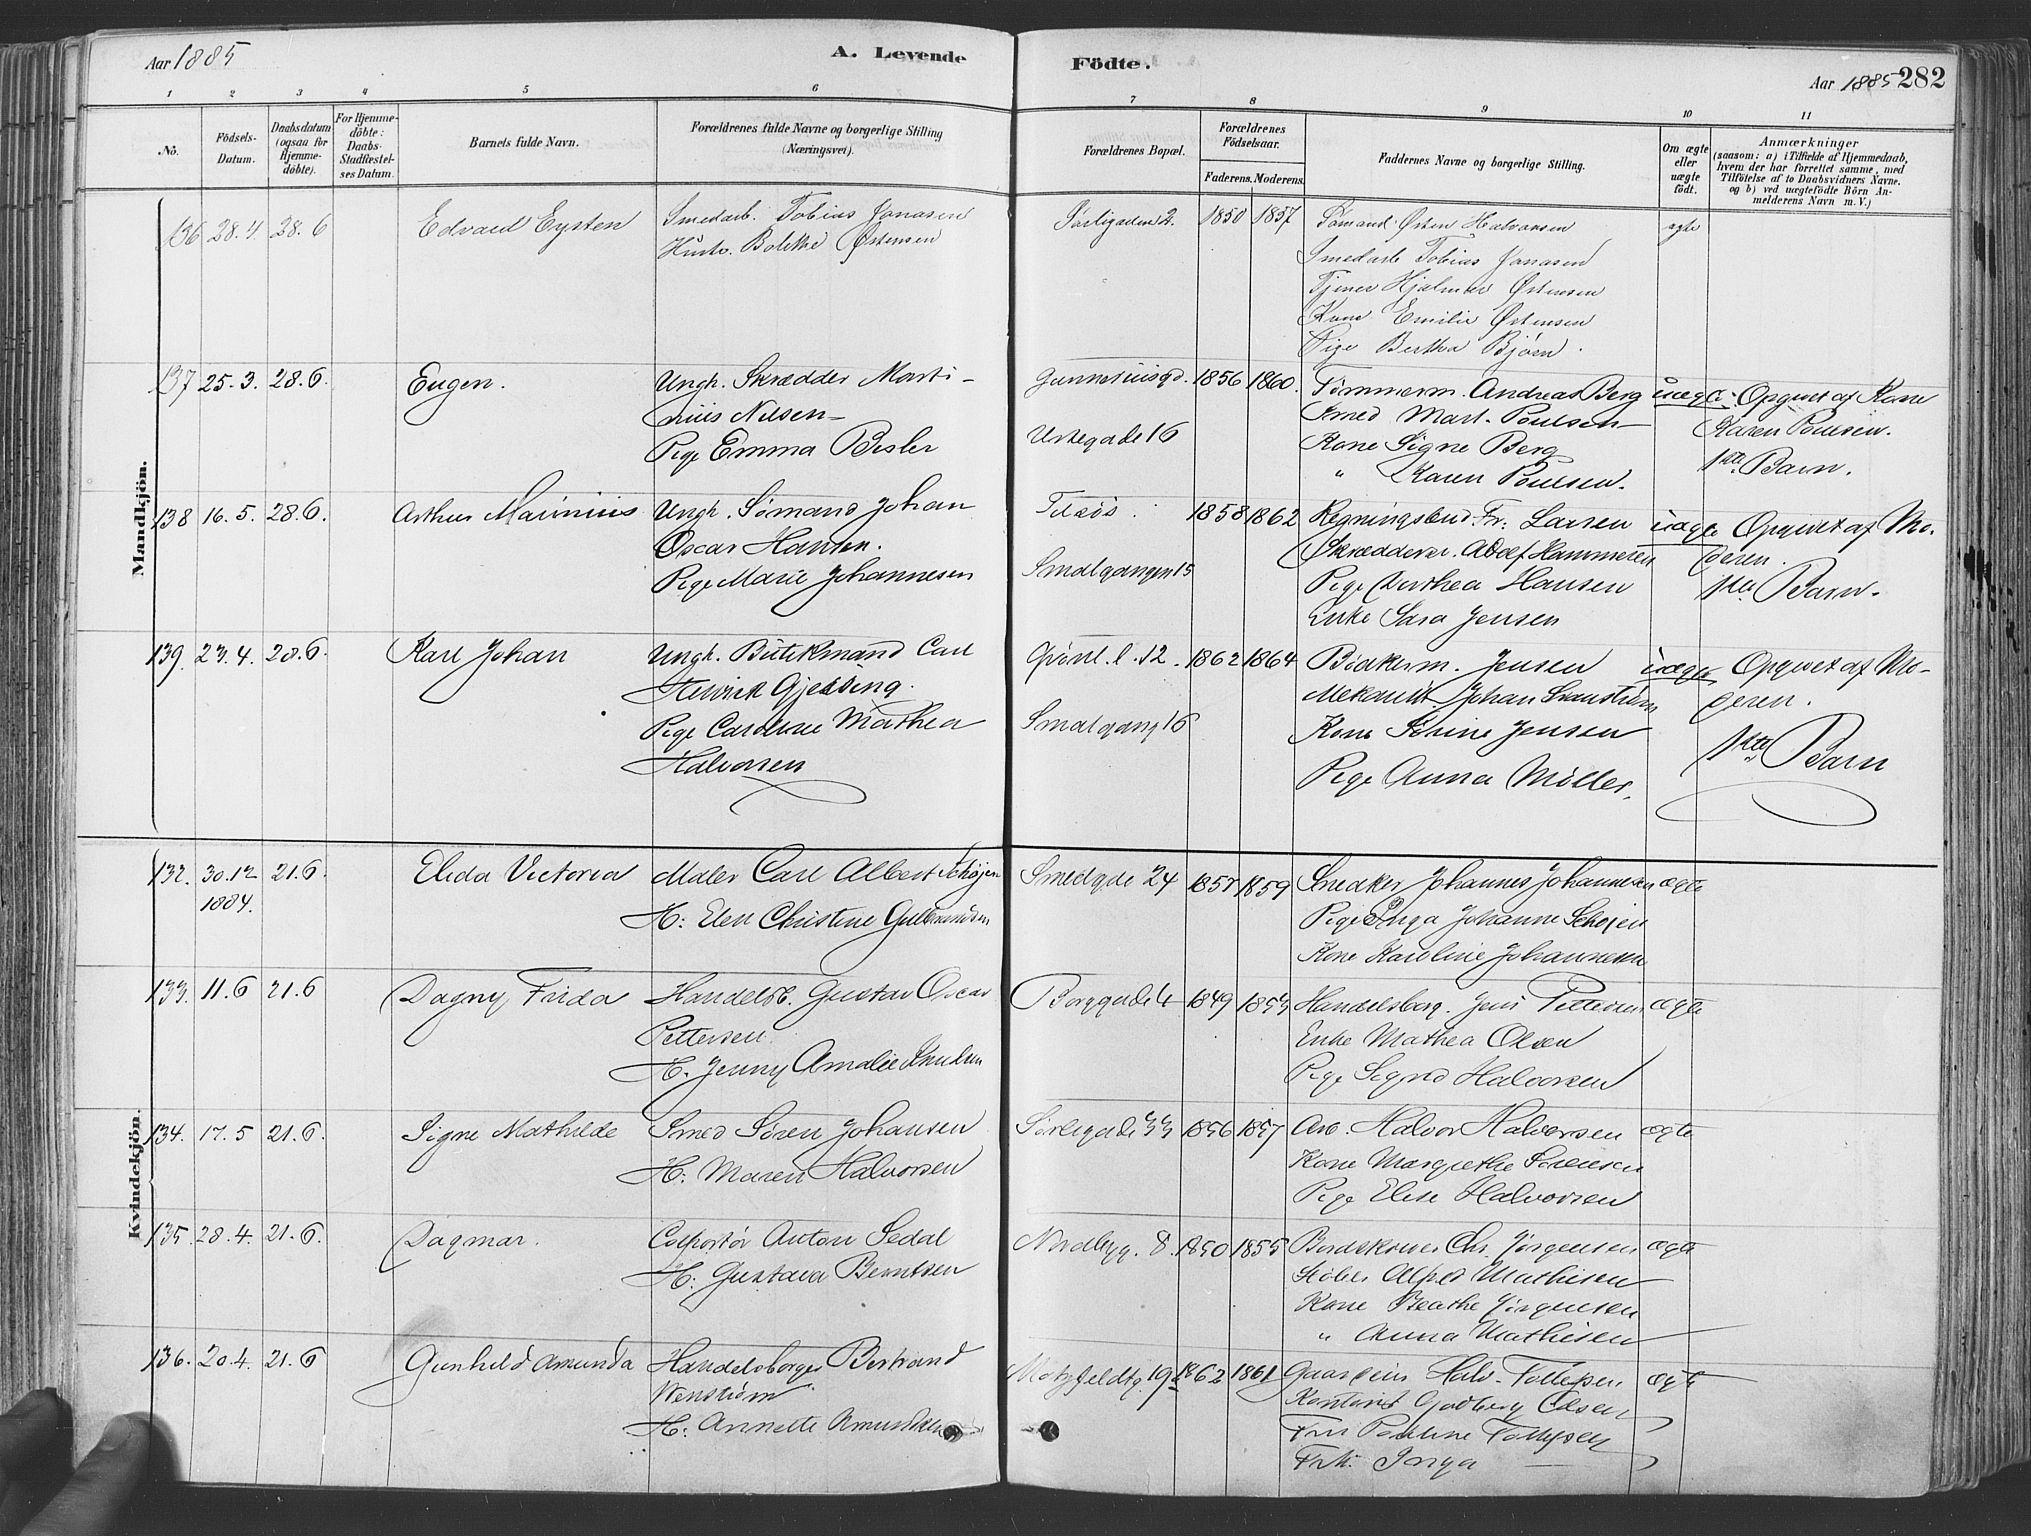 Aar 1885
A. Levende Födte.
Aar 1885 282
1 2 3 4 5 6 7 8 9 10 11
No.
Födsels-Datum.
Daabsdatum (ogsaa for Hjemmedöbte).
For Hjemmedöbte: Daabs-Stadfæstelses Datum.
Barnets fulde Navn.
Forældrenes fulde Navne og borgerlige Stilling (Næringsvei).
Forældrenes Bopæl.
Forældrenes Födselsaar.
Faderens. Moderens.
Faddernes Navne og borgerlige Stilling.
Om ægte eller uægte födt.
Anmærkninger
(saasom: a) i Tilfælde af Hjemmedaab,
hvem der har forrettet samme, med
Tilföielse af to Daabsvidners Navne.
og b) ved uægtefödte Börn An-
melderens Navn m. V.)
Mandkjön.
136 28.4 28.6 Edvard Eysten Smedarb. Tobias Jonasen 1850 1857 Sømand Østen Halvorsen ægte
Hustr. Bolette Østensen Smedarb Tobias Jonasen
Tjener Hjalmar Østensen
Kone Emilie Østensen
Pige Bertha Bjørn.
137 25.3. 28.6. Eugen. Ungk. Skrædder Marti- 1856 1860. Tømmerm. Andreas Berg uægte Opgivet af Kone
nius Nilsen Smed Mart. Poulsen Karen Poulsen.
Pige Emma Besler Urtegade 16 Kone Signe Berg 1ste Barn.
" Karen Poulsen.
138 16.5. 28.6. Arthur Marinius Ungk. Sømand Johan 1858 1862 Regningsbud Fr. Larsen uægte Opgivet af Mo-
Oscar Hansen. Skræddersv. Adolf Hammersen deren.
Pige Marie Johannesen Smalgangen 15 Pige Dorthea Hansen 1ste Barn.
Enke Sara Jensen
139. 23.4. 28.6. Karl Johan Ungk. Carl Grønl. l. 12. 1862 1864 Bødkerm. Jensen uægte Opgivet af Mo-
Henrick Gjessing. Johan deren.
Pige Caroline Mathea Smalgang 16 Kone Jensen 1ste Barn
Halvorsen Pige Anna Møller.
Kvindekjön.
132. 30.12 1884. 21.6. Elida Victoria Maler Carl Albert Schøjen Smedgde 24 1857 1859 Snedker Johannes Johannesen ægte
H: Elen Christine Gulbrandsen Pige Inga Johanne Schøjen
Kone Karoline Johannesen
133. 11.6 21.6 Dagny Frida Handelsb. Gustav Oscar Borggade 4 1849 1853 Handelsborg. Jens Pettersen ægte
Pettersen Enke Mathea Olsen
H. Jenny Amalie Knudsen Pige Sigrid Halvorsen
134. 17.5 21.6. Signe Mathilde Smed Søren Johansen Sørligade 33 1856 1857 Arb. Halvor Halvorsen ægte
H: Maren Halvorsen Kone Margrethe Sørensen
Pige Elise Halvorsen
135. 28.4. 21.6. Dagmar. Colportør Anton Sedal Nordbyg. 8. 1850 1855 Chr. Jørgensen ægte
H: Gustava Berntsen Støber Alfred Mathisen
Kone Beathe Jørgensen
" Anna Mathisen
136. 20.4. 21.6 Gunhild Amunda Handelsborger Bertrand Motzfeldtg. 19 1862 1861 Halv. Tollefsen ægte
Wenstrøm Kontorist Godberg Olsen
H. Annette Amundsen Fru Pauline Tollefsen
Frk. Inga